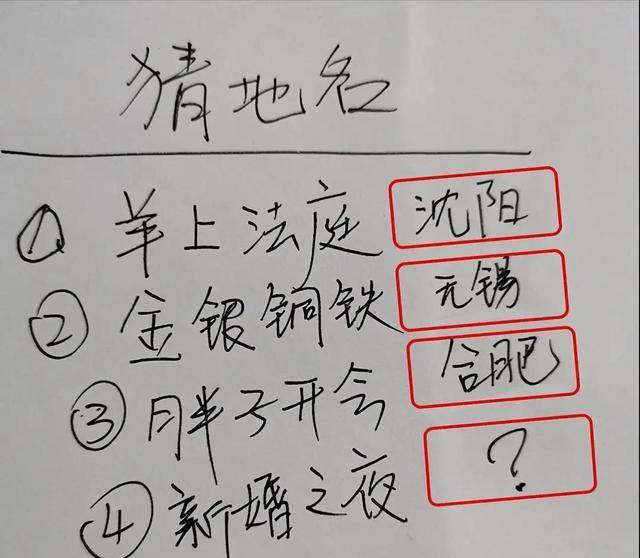 猜地名
① 羊上法庭 沈阳
② 金银铜铁 无锡
③ 胖子开会 合肥
④ 新婚之夜 ?